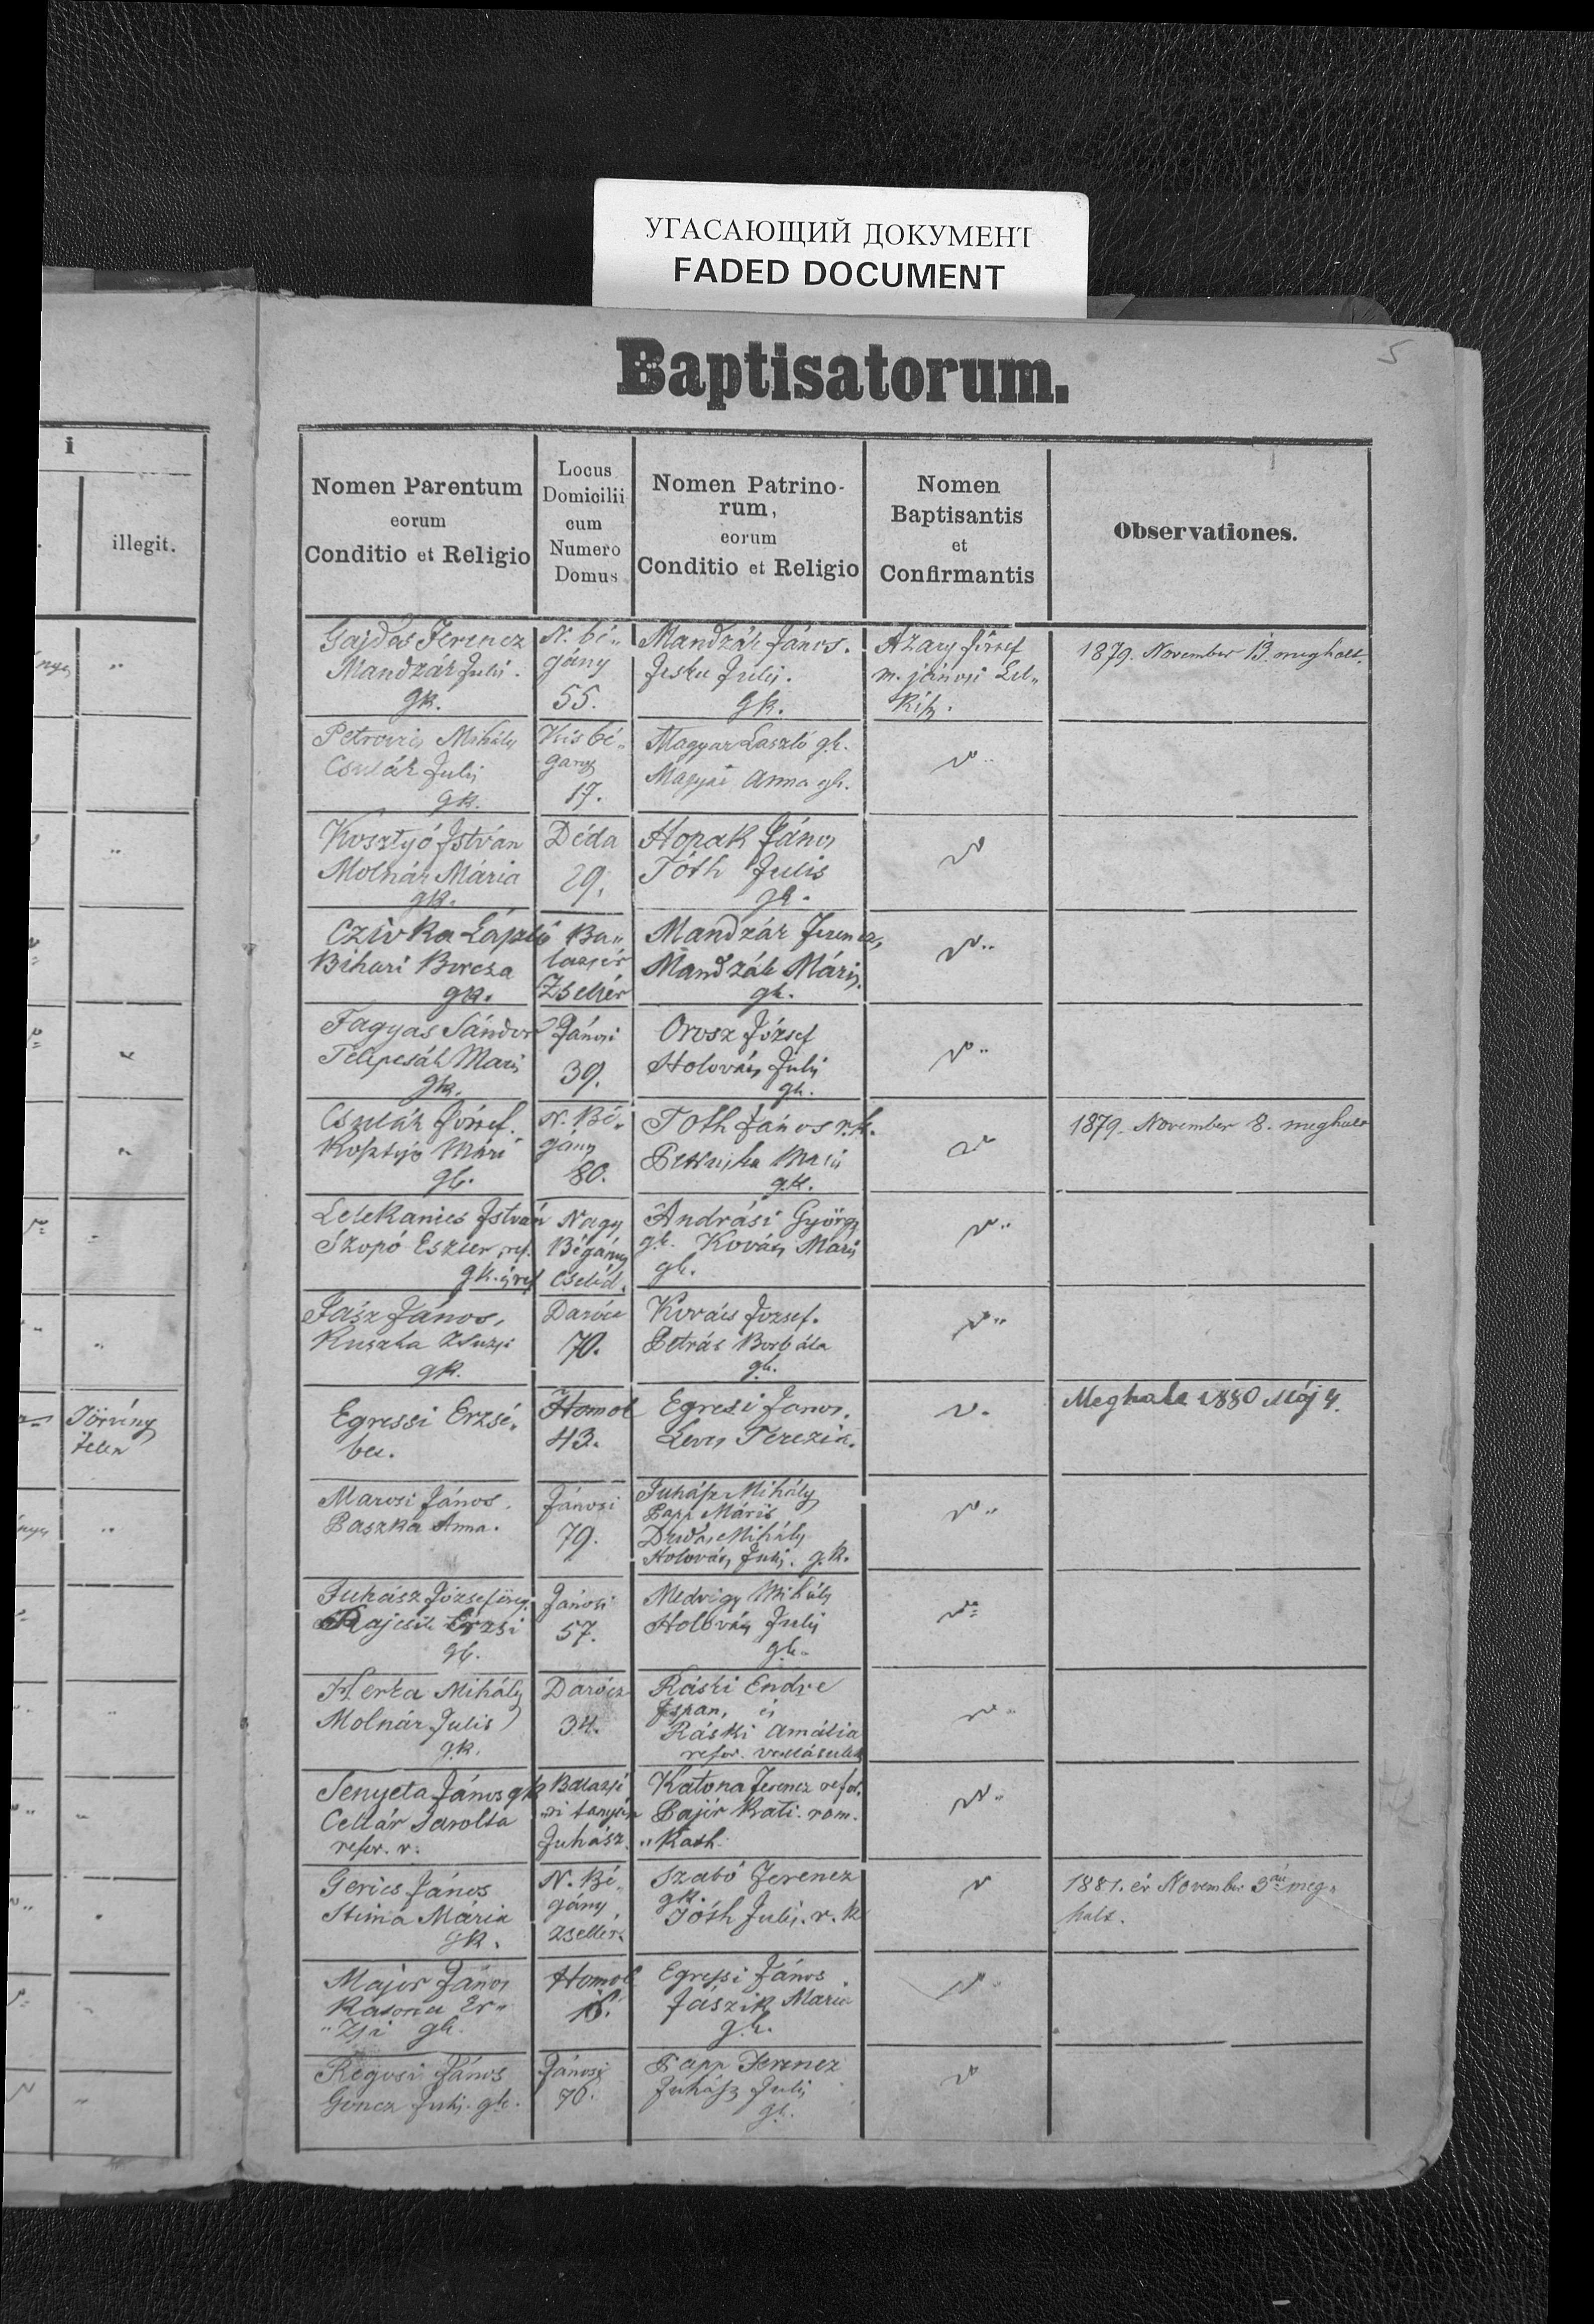 УГАСАЮЩИЙ ДОКУМЕНТ
FADED DOCUMENT
5
Baptisatorum.
i
illegit.
Nomen Parentum
eorum
Conditio et Religio
Locus
Domicilii
cum
Numero
Domus
Nomen Patrino-
rum,
eorum
Conditio et Religio
Nomen
Baptisantis
et
Confirmantis
Observationes.
Gajdos Ferencz
Mandzák Juli.
gk.
N. bé„
gány
55.
Mandzák János.
Jesku Julj.
gk.
Azary József
m. jánosi Lel„
kész.
1879. November 13. meghalt.
Petrovics Mihály
Csulák Julis
gk.
Kis bé„
gany
17.
Magyar László gk.
Magyar Anna gk.
Kosztyó István
Molnár Mária
gk.
Déda
29.
Hopak János
Tóth Julis
gk.
Czivka László
Bihari Borcsa
gk.
Ba„
lazsér
Zsellér
Mandzák Ferencz,
Mandzák Máris.
gk.
Fagyas Sándor
Telepcsák Maris
gk.
Jánosi
39.
Orosz József
Holovács Julis
gk.
Csulák József.
Kosztyó Mári
gk.
N. Bé„
gány
80.
Tóth János r.k.
Maris
g.k.
1879. November 8. meghalt
Lelekanics István
Szopó Eszter, ref.
gk. ref
Nagy
Bégány
cseléd.
Andrási György
gk. Kovács Máris
gk.
Jász János,
Kuszka Zsuzsi
gk.
Darócz
70.
Kovács József.
Petrás Borbála
gk.
Törvény
telen
Egressi Erzsé„
bet.
Homok
43.
Egresi János.
Terezia.
Meghalt 1880 Máj 4.
Marosi János.
Paszka Anna.
Jánosi
79.
Juhász Mihály
Papp Máris
Mihály
Holovács Juli. g.k.
Juhász József öreg.
Rajcsik Erzsi
gk.
Jánosi
57.
Medvigy Mihály
Holovács Julis
gk.
Herka Mihály
Molnár Julis
g.k.
Darócz
34.
Ráski Endre
Ispan, és
Ráski Amália
refor. vallásuak
Senyeta János gk
Cellár Sarolta
refor. v.
Balazsé
ri tanyán
Juhász.
Katona Ferencz refor.
Pajor Kati. rom.
„Kath
Gerics János
Stima Mária
gk.
N. Bé„
gány,
zsellér.
Szabó Ferencz
gk.
Tóth Julis. r. k
1881. év November 3án meg„
halt.
Major János
Katona Er„
„zsi gk.
Homok
Egressi János
Jászik Maria
g.k.
Regusi János
Goncz Juli. gk.
Jánosi
70.
Papp Ferencz
Juhász Julis
gk.